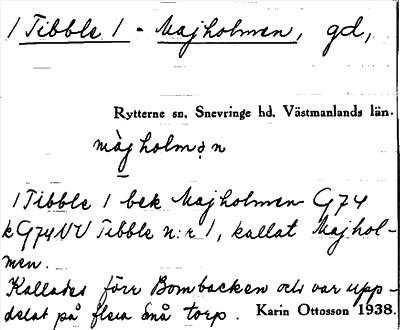 1 Tibble 1 - Majholmen, gd,
Rytterne sn, Snevringe hd, Västmanlands län.
màjholmən
1 Tibble 1 bek Majholmen G74
kG74NV Tibble n:r 1, kallat Majhol-
men.
Kallades förr Bombacken och var upp-
delat på flera små torp. Karin Ottosson 1938.